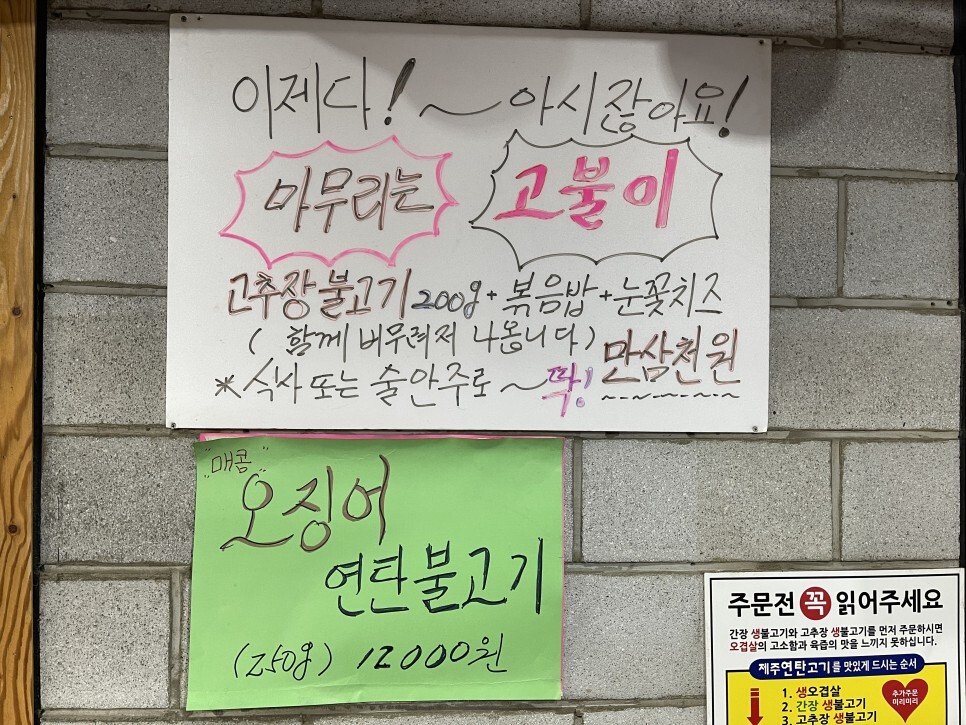 이제다! ~ 아시잖아요!
마무리는 고불이
고추장불고기 200g + 볶음밥 + 눈꽃치즈
( 함께 버무려져 나옵니다 ) 만삼천원
* 식사 또는 술안주로 ~ 딱!
"매콤"
오징어
연탄불고기
(250g) 12000원
주문전 꼭 읽어주세요
간장 생불고기와 고추장 생불고기를 먼저 주문하시면
오겹살의 고소함과 육즙의 맛을 느끼지 못하십니다.
제주연탄고기를 맛있게 드시는 순서
1. 생오겹살
2. 간장 생불고기
3. 고추장 생불고기
추가주문
미리미리